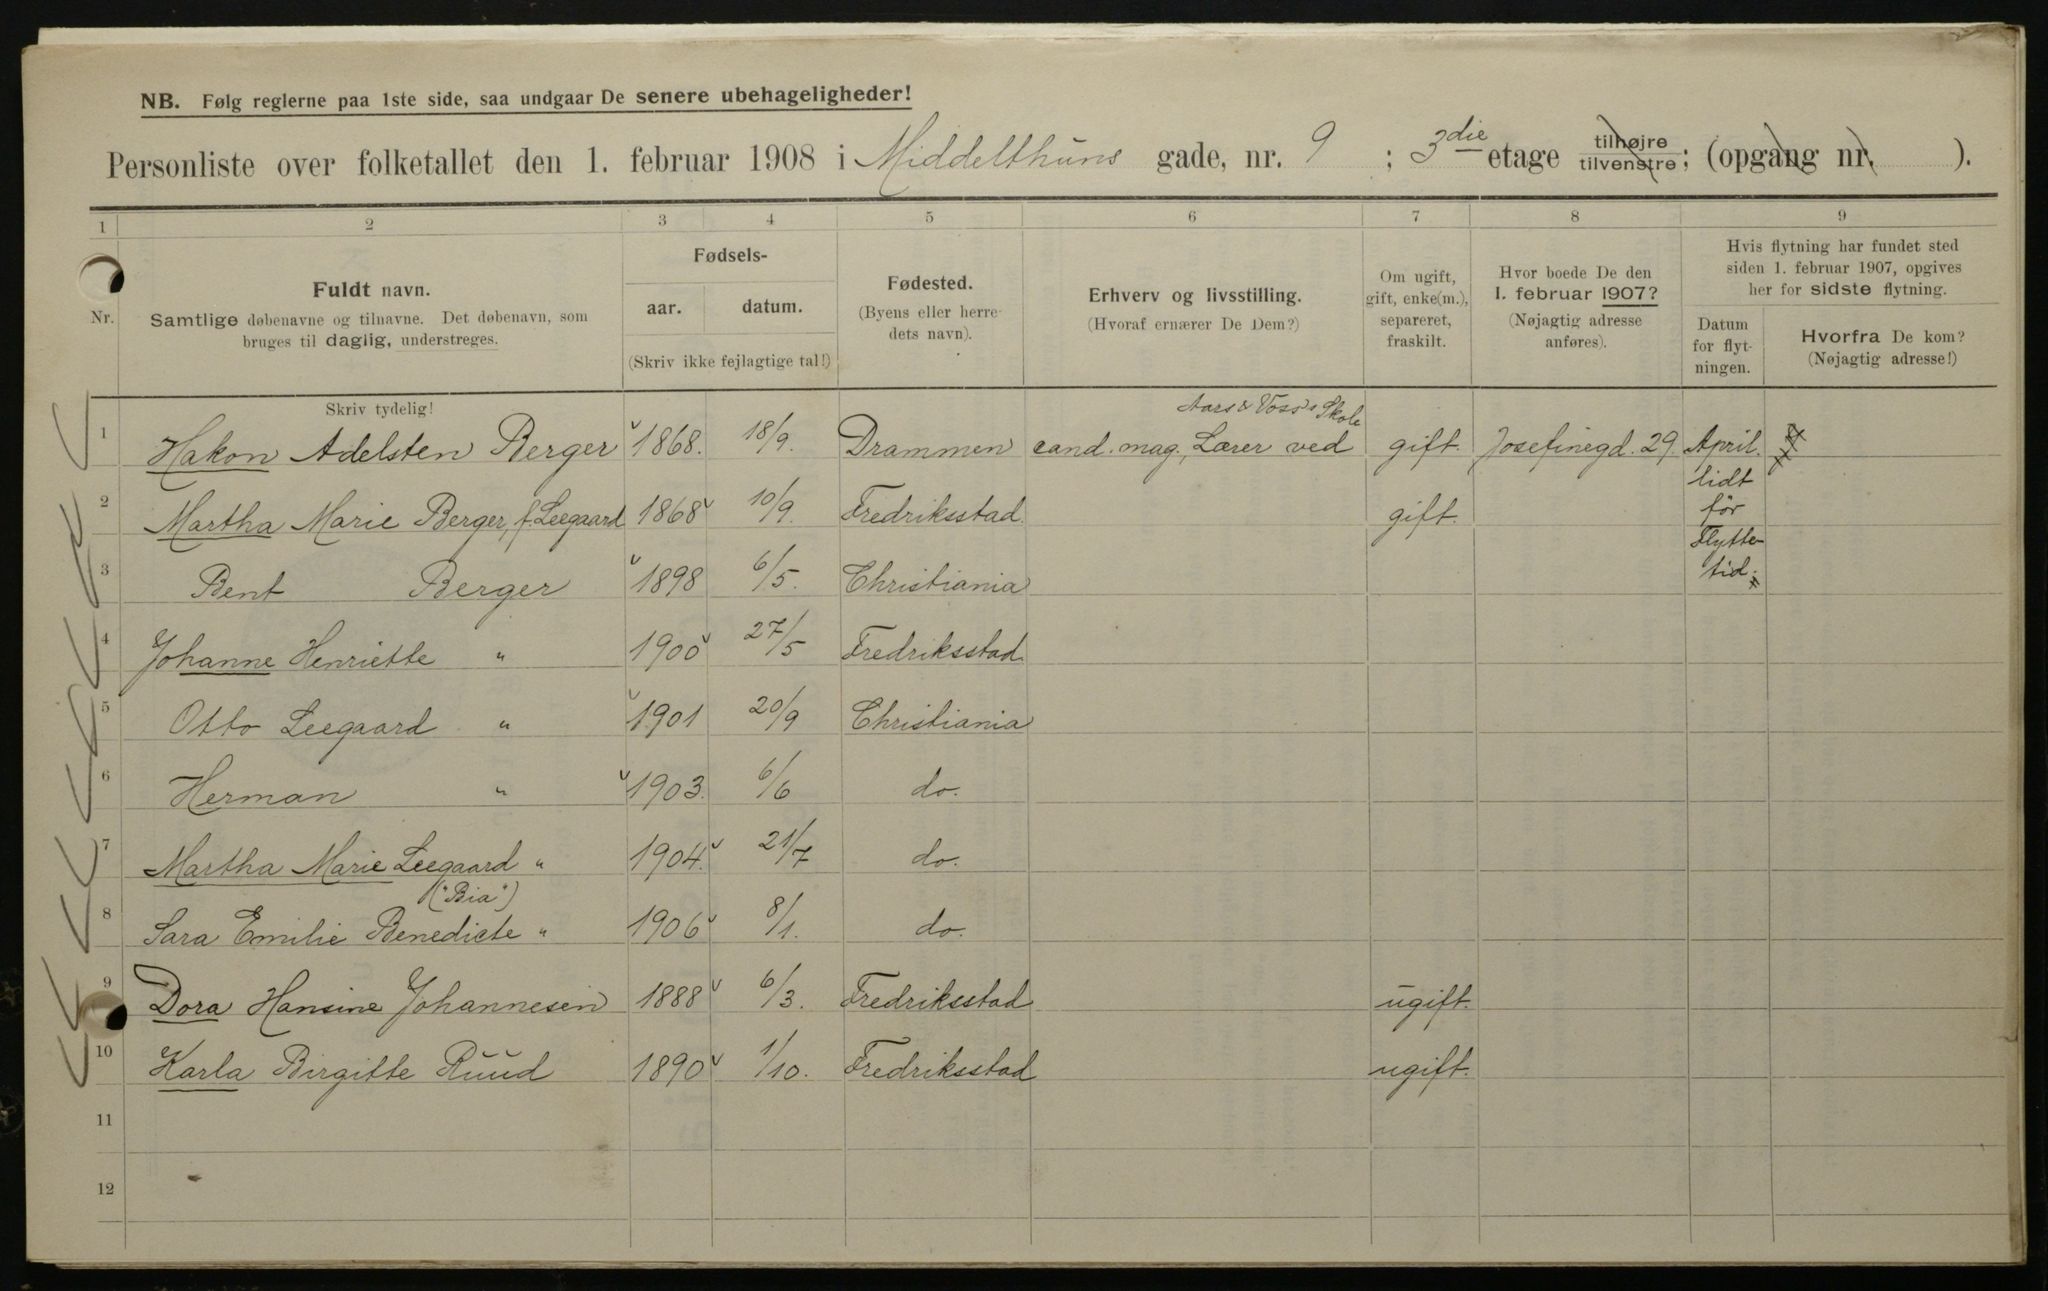 NB. Følg reglerne paa 1ste side, saa undgaar De senere ubehageligheder!
Personliste over folketallet den 1. februar 1908 i Middelthuns gade, nr. 9 ; 3die etage tilhøjre tilvenstre; (opgang nr. ).
1 2 3 4 5 6 7 8 9
Nr.
Fuldt navn.
Samtlige døbenavne og tilnavne. Det døbenavn, som
bruges til daglig, understreges.
Skriv tydelig!
Fødsels-
aar. datum.
(Skriv ikke fejlagtige tal!)
Fødested.
(Byens eller herre-
dets navn).
Erhverv og livsstilling.
(Hvoraf ernærer De Dem?)
Om ugift,
gift, enke(m.),
separeret,
fraskilt.
Hvor boede De den
1. februar 1907?
(Nøjagtig adresse
anføres).
Hvis flytning har fundet sted
siden 1. februar 1907, opgives
her for sidste flytning.
Datum
for flyt-
ningen.
Hvorfra De kom?
(Nøjagtig adresse!)
Aars & Voss's Skole
1 Hakon Adelsten Berger 1868. 18/9. Drammen cand. mag., Lærer ved gift. Josefinegd. 29. April.
lidt
2 Martha Marie Berger, f. Leegaard 1868 10/9. Fredriksstad. gift. før
Flytte-
3 Bent Berger 1898 6/5. Christiania tid.
4 Johanne Henriette " 1900 27/5 Fredriksstad.
5 Otto Leegaard " 1901 20/9 Christiania
6 Herman " 1903. 6/6 do.
7 Martha Marie Leegaard " 1904. 21/7 do.
("Bia")
8 Sara Emilie Benedicte " 1906 8/1. do.
9 Dora Hansine Johannesen 1888 6/3. Fredriksstad ugift.
10 Karla Birgitte Ruud 1890 1/10. Fredriksstad ugift.
11
12